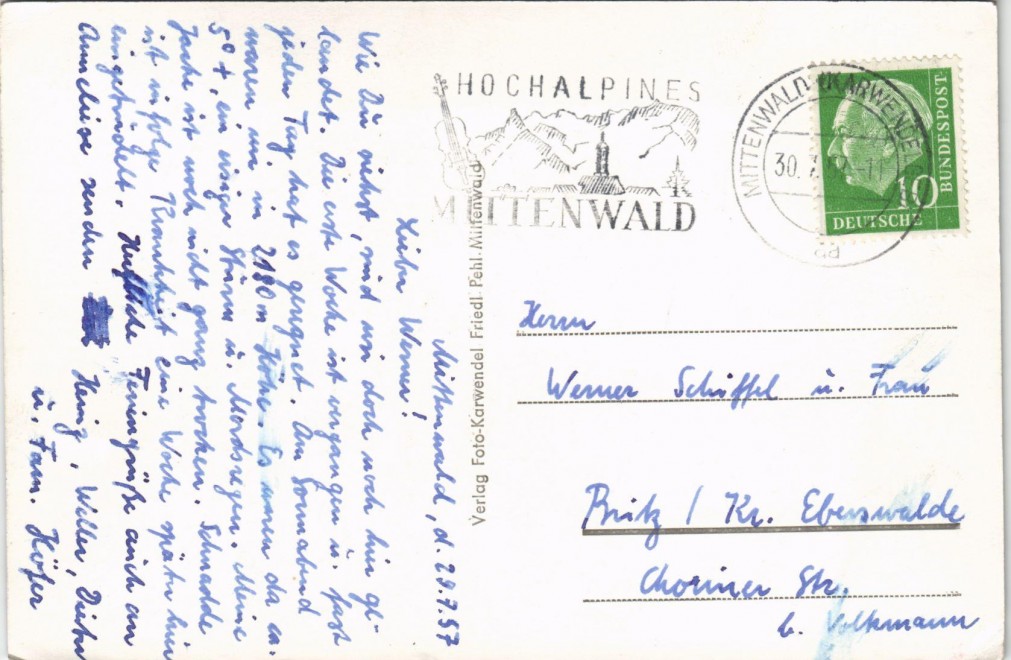 Mittenwald, d. 29.7.57
Lieber Werner!
Wie Du siehst, sind wir doch noch hier ge-
landet. Die erste Woche ist vergangen u. fast
jeden Tag hat es geregnet. Am Sonnabend
waren wir in 2180 m Höhe. Es waren da ca.
5° +, ein eisiger Sturm u. Mordsregen. Meine
Jacke ist noch nicht ganz trocken. Schnadde
ist infolge Krankheit eine Woche später hier
eingetrudelt. Herzliche Feriengrüße auch an
Anneliese senden Heinig, Willer, Dieter
u. Fam. Höfer
Verlag Foto-Karwendel Friedl Pehl. Mittenwald
HOCHALPINES
MITTENWALD
MITTENWALD (KARWENDEL
30.7.57-11
DEUTSCHE
BUNDESPOST
10
Herrn
Werner Schiffel u. Frau
Britz / Kr. Eberswalde
Choriner Str.
b. Volkmann